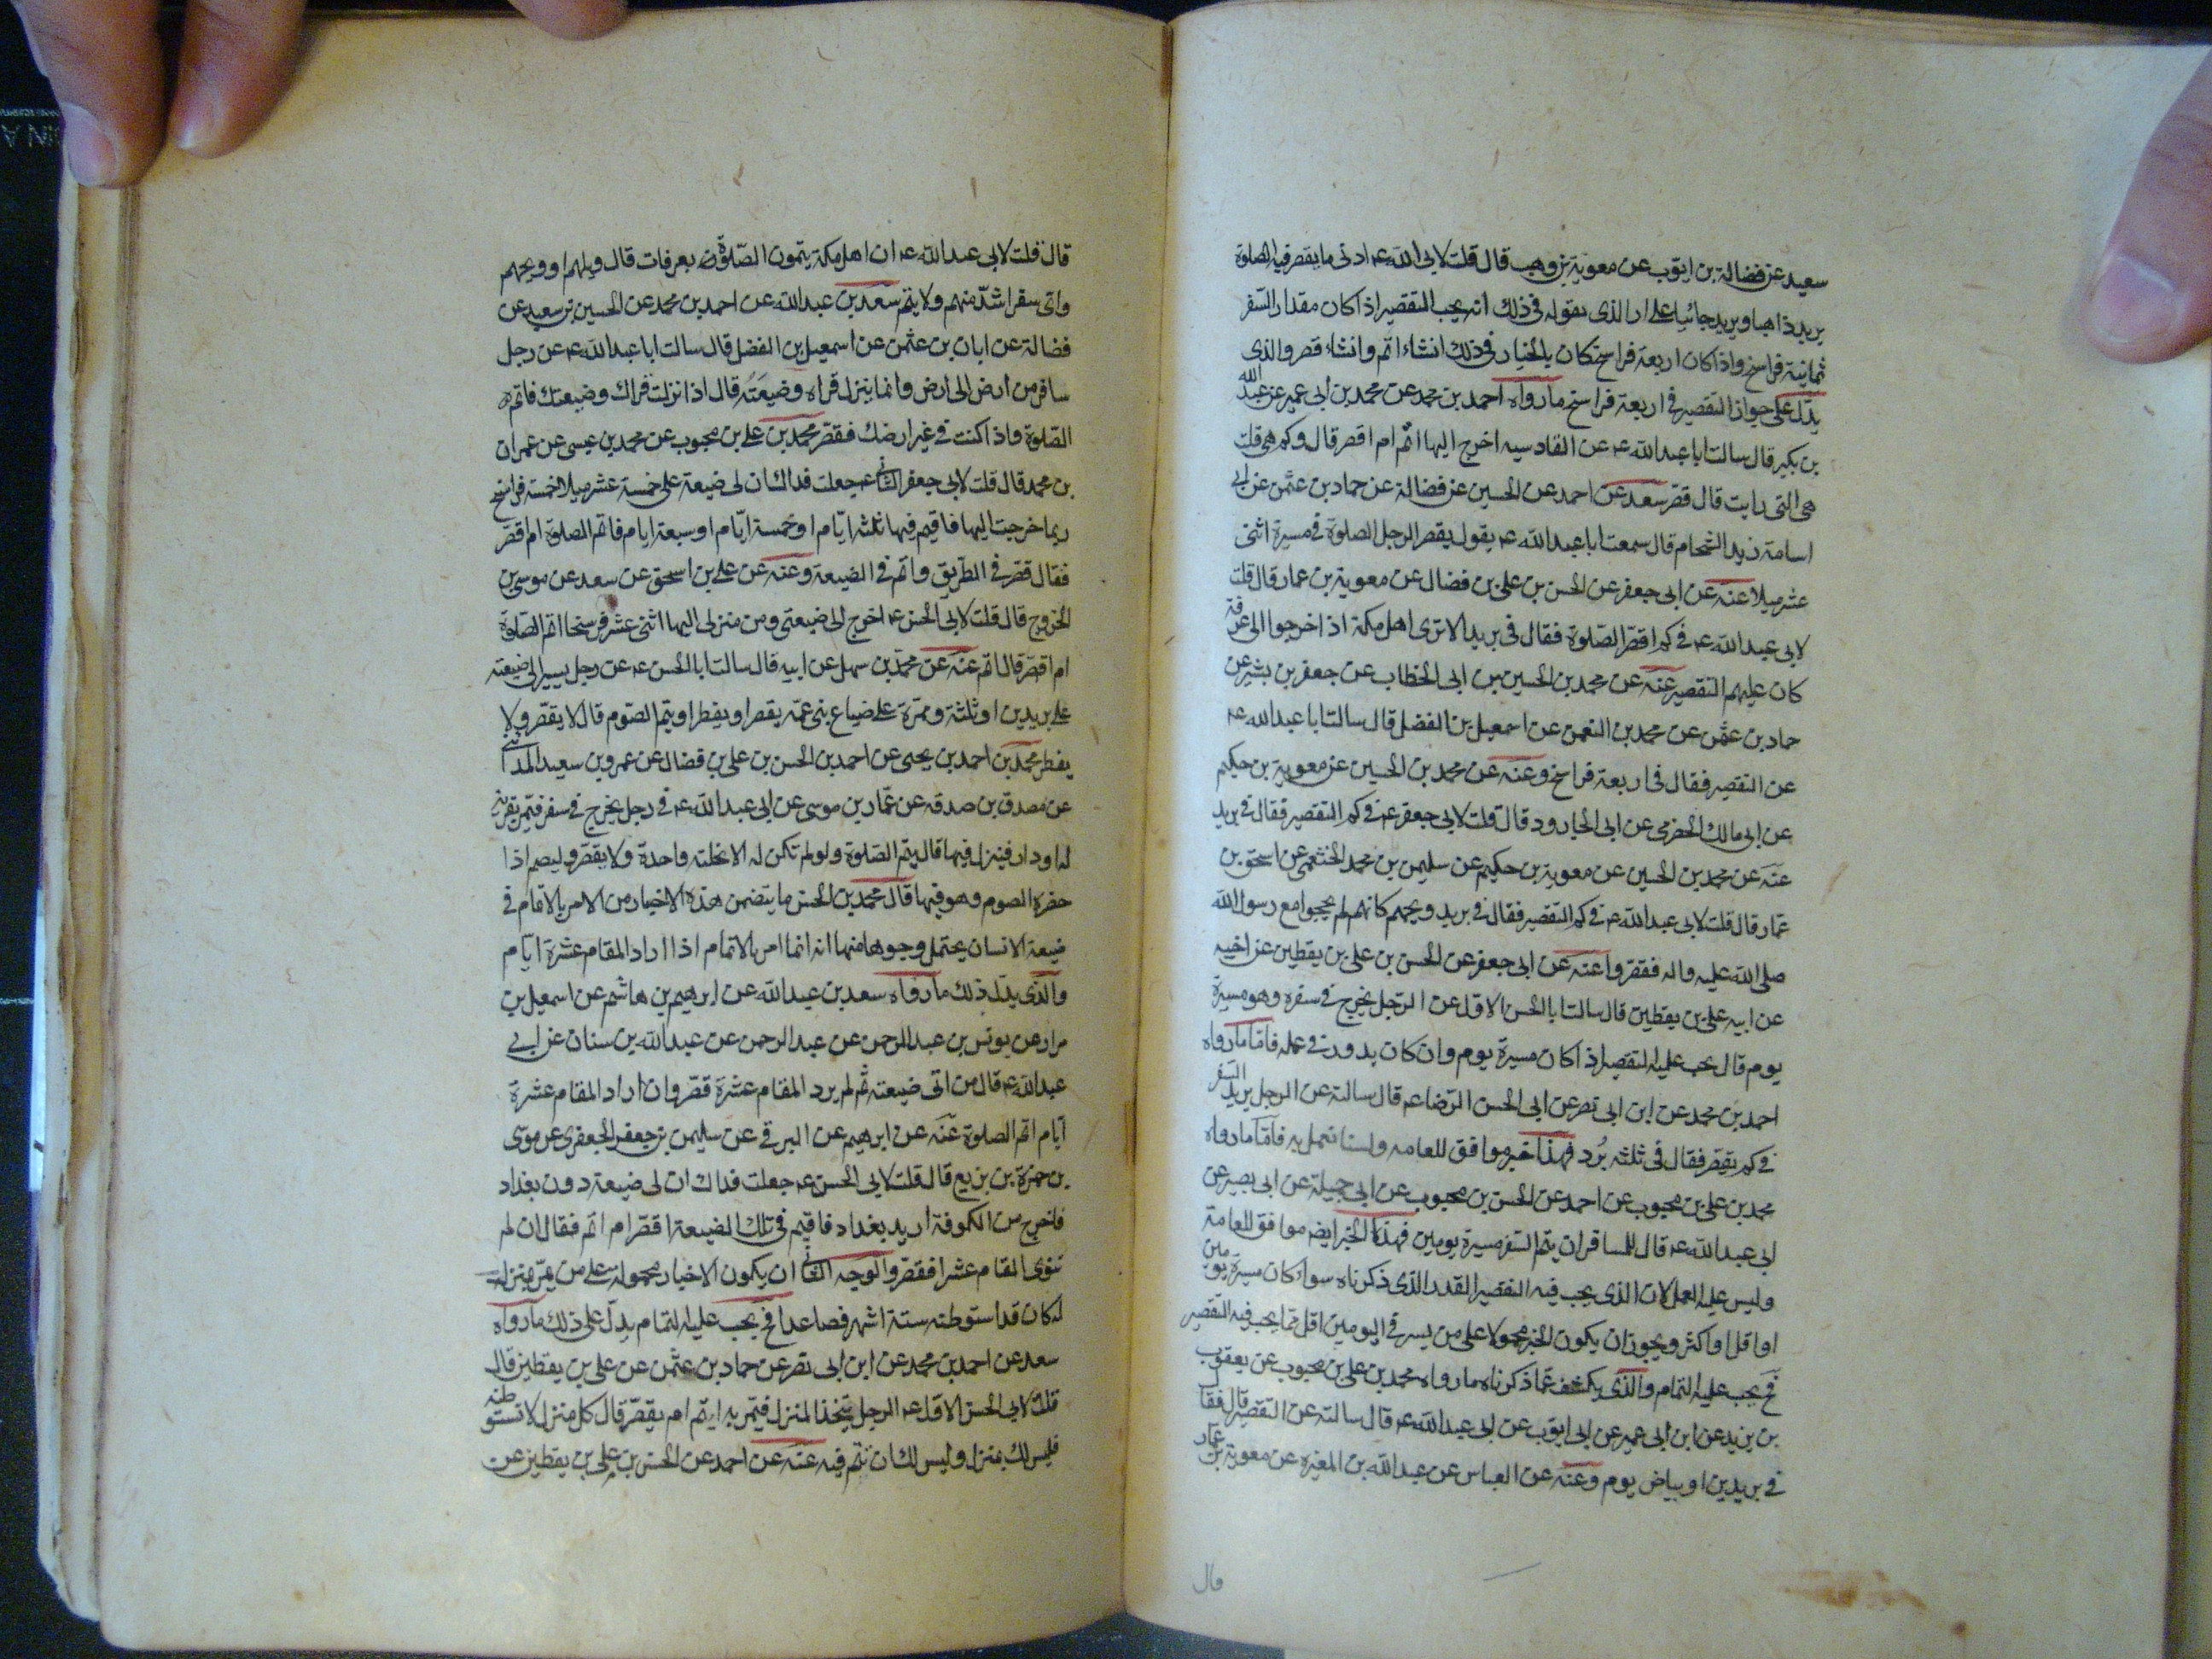 سعيد عن فضالة بن ايوب عن معوية بن وهب قال قلت لابى الله ع ادنى ما يقصر فيه الصلوة
بريد ذاهبا وبريد جائيا على ان الذى نقوله فى ذلك انه يجب التقصير اذا كان مقدار السفر
ثمانية فراسخ واذا كان اربعة فراسخ كان بالخيار فى ذلك ان شاء اتم وان شاء قصر والذى
يدل على جواز التقصير فى اربعة فراسخ ما رواه احمد بن محمد عن محمد بن ابى عمير عن عبد الله
بن بكير قال سالت ابا عبد الله ع عن القادسيه اخرج اليها اتم ام اقصر قال وكم هى قلت
هى التى رايت قال قصر سعد عن احمد عن الحسين عن فضالة عن حماد بن عثمن عن ابى
اسامة زيد الشحام قال سمعت ابا عبد الله ع يقول يقصر الرجل الصلوة فى مسيرة اثنى
عشر ميلا عنه عن ابى جعفر عن الحسن بن على بن فضال عن معوية بن عمار قال قلت
لابى عبد الله ع فى كم اقصر الصلوة فقال فى بريد الا ترى اهل مكة اذا خرجوا الى عرفة
كان عليهم التقصير عنه عن محمد بن الحسين بن ابى الخطاب عن جعفر بن بشير عن
حماد بن عثمن عن محمد بن النعمن عن اسمعيل بن الفضل قال سالت ابا عبد الله ع
عن التقصير فقال فى اربعة فراسخ وعنه عن محمد بن الحسين عن معوية بن حكيم
عن ابى مالك الحضرمى عن ابى الجارود قال قلت لابى جعفر ع فى كم التقصير فقال فى بريد
عنه عن محمد بن الحسين عن معوية بن حكيم عن سليمن بن محمد الخثعمى عن اسحق بن
عمار قال قلت لابى عبد الله ع فى كم التقصير فقال فى بريد ويحهم كانهم لم يحجوا مع رسول الله
صلى الله عليه واله فقصروا عنه عن ابى جعفر عن الحسن بن على بن يقطين عن اخيه
عن ابيه على بن يقطين قال سالت ابا الحسن الاول عن الرجل يخرج فى سفره وهو مسيرة
يوم قال يجب عليه التقصير اذا كان مسيرة يوم وان كان يدور فى عمله فاما ما رواه
احمد بن محمد عن ابن ابى نصر عن ابى الحسن الرضا ع قال سالته عن الرجل يريد السفر
فى كم يقصر فقال فى ثلثه برد فهذا خبر موافق للعامه ولسنا نعمل به فاما ما رواه
محمد بن على بن محبوب عن احمد عن الحسن بن محبوب عن ابى جميلة عن ابى بصير عن
ابى عبد الله ع قال للمسافر ان يتم السفر مسيرة يومين فهذا الخبر ايضه موافق للعامة
وليس عليه العمل لان الذى يجب فيه التقصير القدر الذى ذكرناه سواء كان مسيرة يومين
او اقل او اكثر ويجوز ان يكون الخبر محمولا على من يسير فى اليومين اقل مما يجب فيه التقصير
فح يجب عليه التمام والذى يكشف عما ذكرناه ما رواه محمد بن على بن محبوب عن يعقوب
بن يزيد عن ابن ابى عمير عن ابى ايوب عن ابى عبد الله ع قال سالته عن التقصير قال فقال
فى بريدين او بياض يوم وعنه عن العباس عن عبد الله بن المغيره عن معوية بن عمار
قال
قال قلت لابى عبد الله ع ان اهل مكة يتمون الصلوة بعرفات قال ويلهم او ويحهم
واى سفر اشد منهم ولا يتم سعد بن عبد الله عن احمد بن محمد عن الحسين بن سعيد عن
فضالة عن ابان بن عثمن عن اسمعيل بن الفضل قال سالت ابا عبد الله ع عن رجل
سافر من ارض الى ارض وانما ينزل قراه وضيعته قال اذا نزلت قراك وضيعتك فاتم
الصلوة واذا كنت فى غير ارضك فقصر محمد بن على بن محبوب عن محمد بن عيسى عن عمران
بن محمد قال قلت لابى جعفر الثانى ع جعلت فداك ان لى ضيعة على خمسة عشر ميلا خمسة فراسخ
ربما خرجت اليها فاقيم فيها ثلثة ايام او خمسة ايام او سبعة ايام فاتم الصلوة ام اقصر
فقال قصر فى الطريق واتم فى الضيعة وعنه عن على بن اسحق عن سعد عن موسى بن
الخزرج قال قلت لابى الحسن ع اخرج الى ضيعتى ومن منزلى اليها اثنى عشر فرسخا اتم الصلوة
ام اقصر قال اتم عنه عن محمد بن سهل عن ابيه قال سالت ابا الحسن ع عن رجل يسير الى ضيعته
على بريدين او ثلثة وممرة على ضياع بنى عمه يقصر او يفطر او يتم الصوم قال لا يقصر ولا
يفطر محمد بن احمد بن يحيى عن احمد بن الحسن بن على بن فضال عن عمرو بن سعيد المدائنى
عن مصدق بن صدقه عن عمار بن موسى عن ابى عبد الله ع فى رجل يخرج فى سفر فيمر بقرية
له او دار فينزل فيها قال يتم الصلوة ولو لم تكن له الا نخلته واحدة ولا يقصر وليصم اذا
حضره الصوم وهو فيها قال محمد بن الحسن ما يتضمن هذه الاخبار من الامر بالاتمام فى
ضيعة الانسان يحتمل وجوها منها انه انما امر بالاتمام اذا اراد المقام عشرة ايام
والذى يدل ذلك ما رواه سعد بن عبد الله عن ابرهيم بن هاشم عن اسمعيل بن
مرار عن يونس بن عبد الرحمن عن عبد الرحمن عن عبد الله بن سنان عن ابى
عبد الله ع قال من اتى ضيعته ثم لم يرد المقام عشرة قصر وان اراد المقام عشرة
ايام اتم الصلوة عنه عن ابرهيم عن البرقى عن سليمن بن جعفر الجعفرى عن موسى
بن حمزة بن بزيع قال قلت لابى الحسن ع جعلت فداك ان لى ضيعة دون بغداد
فاخرج من الكوفة اريد بغداد فاقيم فى تلك الضيعة اقصر ام اتم فقال ان لم
تنوى المقام عشرا فقصر والوجه الثانى ان يكون الاخبار محمولة على من يمر بمنزلة
له كان قد استوطنه ستة اشهر فصاعدا فح يجب عليه التمام يدل على ذلك ما رواه
سعد عن احمد بن محمد عن ابن ابى نصر عن حماد بن عثمن عن على بن يقطين قال
قلت لابى الحسن الاول ع الرجل يتخذ المنزل فيمر به ايتم ام يقصر قال كل منزل لا تستوطنه
فليس لك بمنزل وليس لك ان تتم فيه عنه عن احمد عن الحسن بن على بن يقطين عن